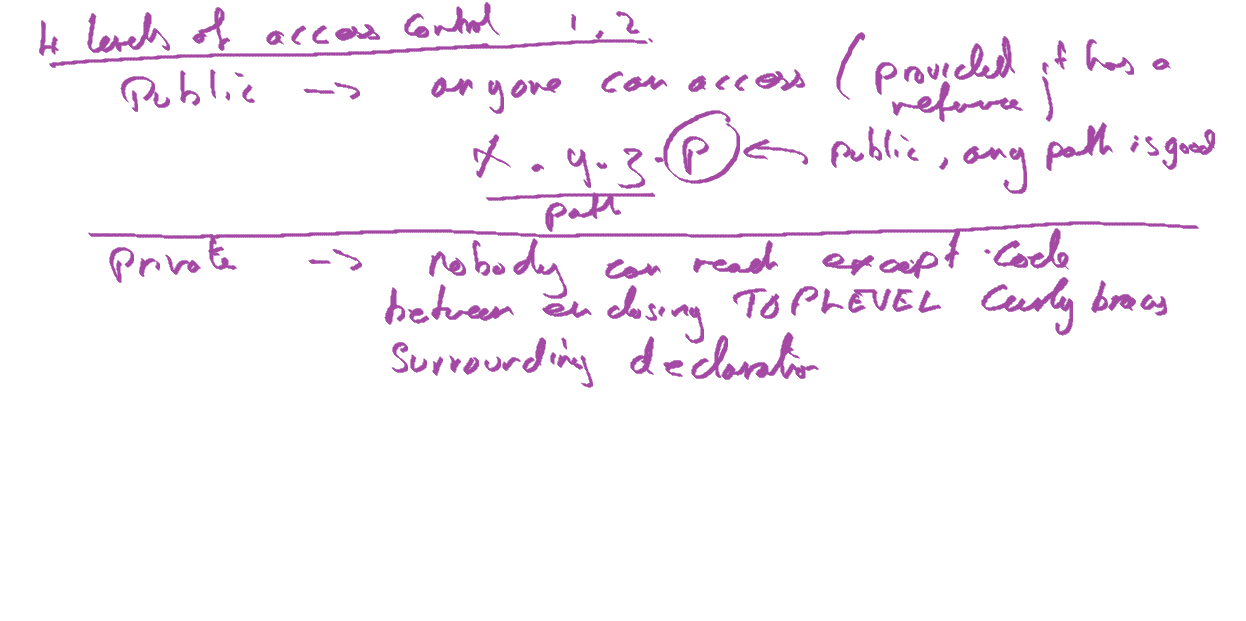 4 levels of access control 1, 2
Public → anyone can access (provided it has a
reference)
x . y . z . P ← public, any path is good
path
Private → nobody can read except code
between enclosing TOPLEVEL curly braces
surrounding declaration